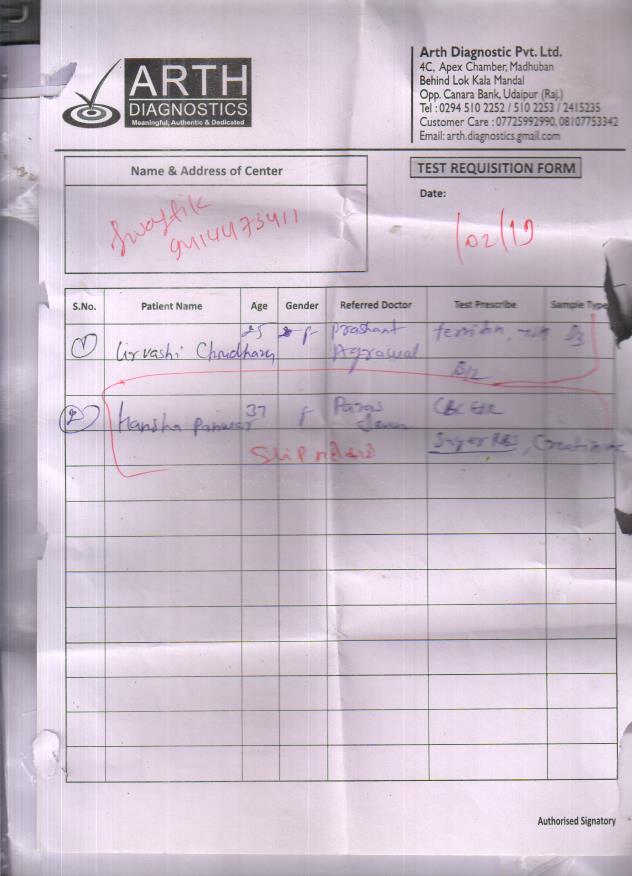 ARTH
DIAGNOSTICS
Meaningful, Authentic & Dedicated
Arth Diagnostic Pvt. Ltd.
4C, Apex Chamber, Madhuban
Behind Lok Kala Mandal
Opp. Canara Bank, Udaipur (Raj.)
Tel : 0294 510 2252 / 510 2253 / 2415235
Customer Care : 07725992990, 08107753342
Email: arth.diagnostics.gmail.com
Name & Address of Center
TEST REQUISITION FORM
Date:
Swastik
9414473411
/02/19
S.No. Patient Name Age Gender Referred Doctor Test Prescribe Sample Type
1 Urvashi Choudhary 25 f Prashant Agrawal D3
B12
2 Hansha Panwar 37 f Paras CBC ESR
Sugar RBS, Creatinine
Authorised Signatory